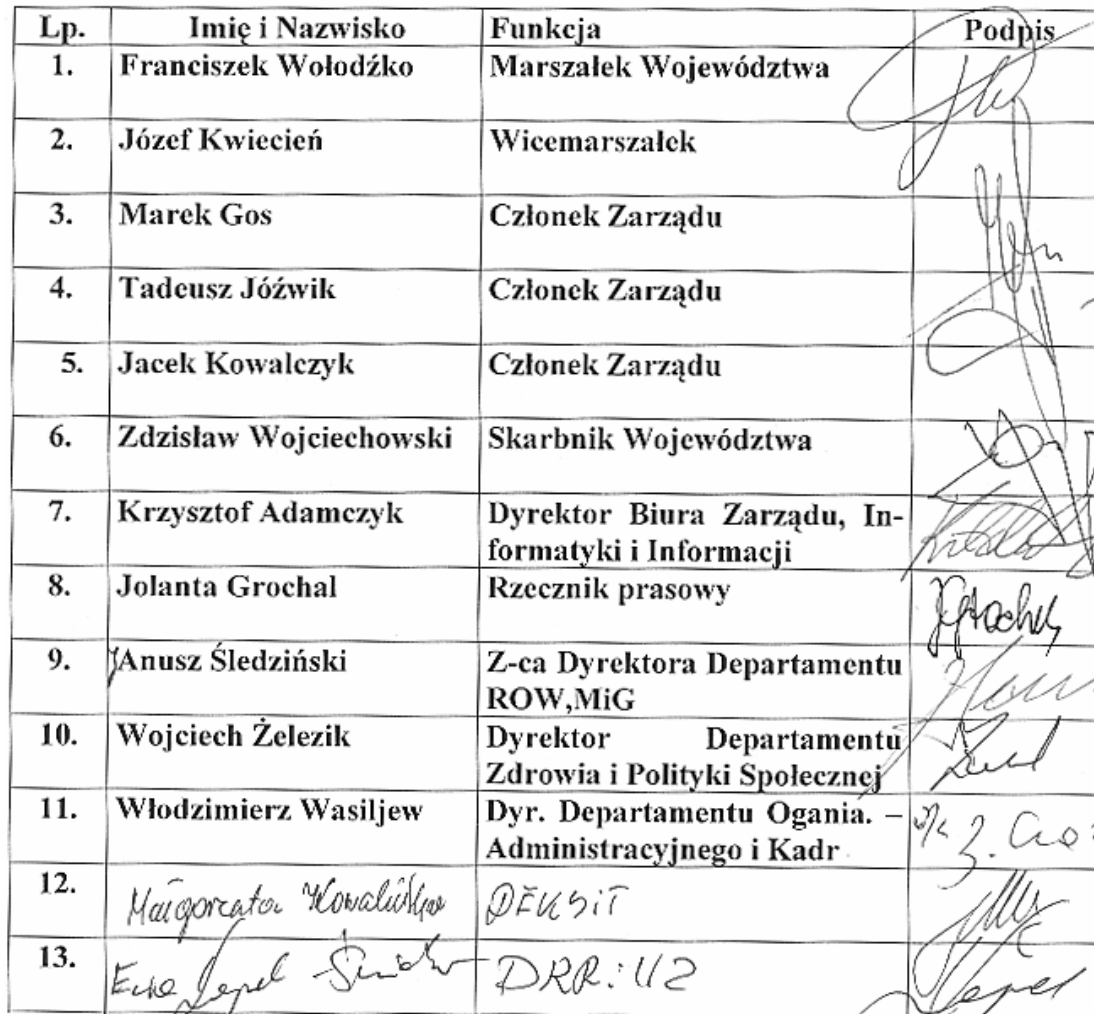 Lp. Imię i Nazwisko Funkcja Podpis
1. Franciszek Wołodźko Marszałek Województwa
2. Józef Kwiecień Wicemarszałek
3. Marek Gos Członek Zarządu
4. Tadeusz Jóźwik Członek Zarządu
5. Jacek Kowalczyk Członek Zarządu
6. Zdzisław Wojciechowski Skarbnik Województwa
7. Krzysztof Adamczyk Dyrektor Biura Zarządu, In-
formatyki i Informacji
8. Jolanta Grochal Rzecznik prasowy
9. JAnusz Śledziński Z-ca Dyrektora Departamentu
ROW,MiG
10. Wojciech Żelezik Dyrektor Departamentu
Zdrowia i Polityki Społecznej
11. Włodzimierz Wasiljew Dyr. Departamentu Ogania. –
Administracyjnego i Kadr
12. Małgorzata DEKSiT
13. Ewa DRR:UZ